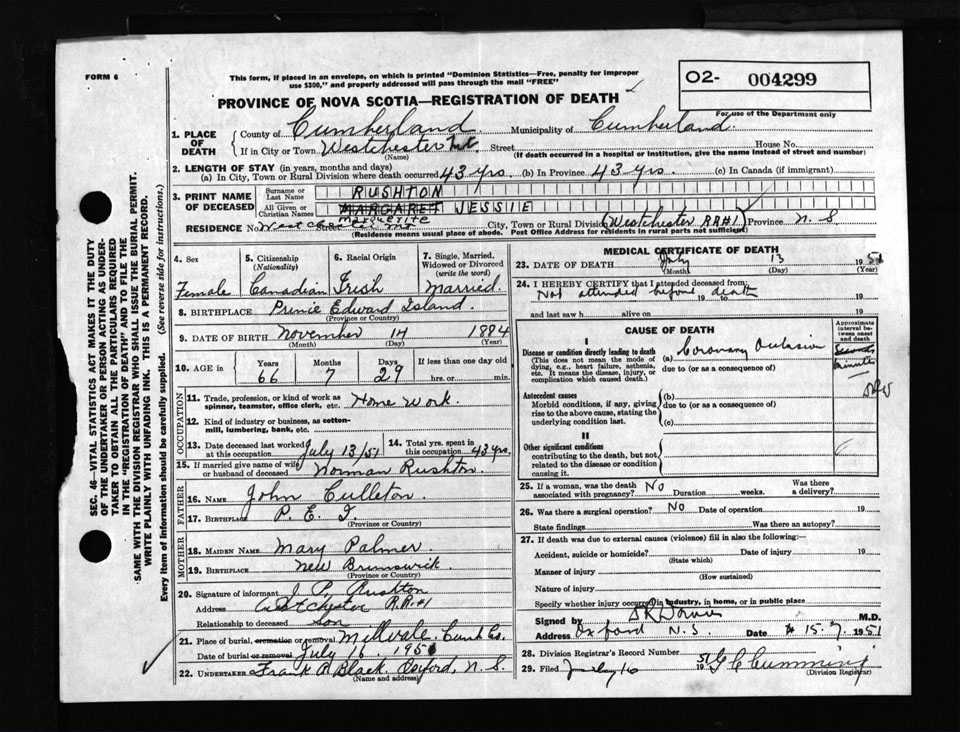 FORM 6
This form, if placed in an envelope, on which is printed "Dominion Statistics—Free, penalty for improper
use $300," and properly addressed will pass through the mail "FREE"
O2- 004299
For use of the Department only
PROVINCE OF NOVA SCOTIA—REGISTRATION OF DEATH
1. PLACE OF DEATH
County of Cumberland Municipality of Cumberland
If in City or Town Westchester Mt Street House No.
(Name) (If death occurred in a hospital or institution, give the name instead of street and number)
2. LENGTH OF STAY (in years, months and days)
(a) In City, Town or Rural Division where death occurred 43 yrs. (b) In Province 43 yrs. (c) In Canada (if immigrant)
3. PRINT NAME OF DECEASED
Surname or Last Name RUSHTON
All Given or Christian Names MARGARET JESSIE
Marguerite
RESIDENCE No. Westchester Mt Street City, Town or Rural Division (Westchester RR#1) Province N. S
(Residence means usual place of abode. Post Office Address for residents in rural parts not sufficient)
4. Sex Female
5. Citizenship (Nationality) Canadian
6. Racial Origin Irish
7. Single, Married, Widowed or Divorced (write the word) Married
8. BIRTHPLACE Prince Edward Island
(Province or Country)
9. DATE OF BIRTH November 14 1884
(Month) (Day) (Year)
10. AGE IN Years 66 Months 7 Days 29 If less than one day old hrs. or min.
OCCUPATION
11. Trade, profession, or kind of work as spinner, teamster, office clerk, etc. Home Work.
12. Kind of industry or business, as cotton-mill, lumbering, bank, etc.
13. Date deceased last worked at this occupation July 13/51
14. Total yrs. spent in this occupation 43 yrs.
15. If married give name of wife or husband of deceased Norman Rushton
FATHER
16. Name John Culleton
17. Birthplace P. E. I.
(Province or Country)
MOTHER
18. Maiden Name Mary Palmer
19. Birthplace New Brunswick
(Province or Country)
20. Signature of informant J. P. Rushton
Address Westchester R.R.#1
Relationship to deceased Son
21. Place of burial, cremation or removal Millvale, Cumb Co.
Date of burial or removal July 16 1951
22. Undertaker Frank A Black. Oxford, N. S.
(Name and address)
MEDICAL CERTIFICATE OF DEATH
23. DATE OF DEATH July 13 1951
(Month) (Day) (Year)
24. I HEREBY CERTIFY that I attended deceased from:
Not attended before death 19 to 19
and last saw h alive on 19
CAUSE OF DEATH
Approximate interval between onset and death
I
Disease or condition directly leading to death (a) Coronary Occlusion
Seconds
minutes
(This does not mean the mode of dying, e.g., heart failure, asthenia, etc. It means the disease, injury, or complication which caused death.)
due to (or as a consequence of)
Antecedent causes
Morbid conditions, if any, giving rise to the above cause, stating the underlying condition last.
(b)
due to (or as a consequence of)
(c)
II
Other significant conditions
contributing to the death, but not related to the disease or condition causing it.
25. If a woman, was the death associated with pregnancy? No Duration weeks. Was there a delivery?
26. Was there a surgical operation? No Date of operation 19
State findings Was there an autopsy?
27. If death was due to external causes (violence) fill in also the following:—
Accident, suicide or homicide? Date of injury 19
(State which)
Manner of injury
(How sustained)
Nature of injury
Specify whether injury occurred in industry, in home, or in public place
Signed by M.D.
Address Oxford N.S. Date 15.7 1951
28. Division Registrar's Record Number
29. Filed July 16 1951 G C Cumming
(Division Registrar)
SEC. 46—VITAL STATISTICS ACT MAKES IT THE DUTY
OF THE UNDERTAKER OR PERSON ACTING AS UNDER-
TAKER TO OBTAIN ALL THE PARTICULARS REQUIRED
IN THE "REGISTRATION OF DEATH" AND TO FILE THE
SAME WITH THE DIVISION REGISTRAR WHO SHALL ISSUE THE BURIAL PERMIT.
WRITE PLAINLY WITH UNFADING INK. THIS IS A PERMANENT RECORD.
Every item of information should be carefully supplied. (See reverse side for instructions.)